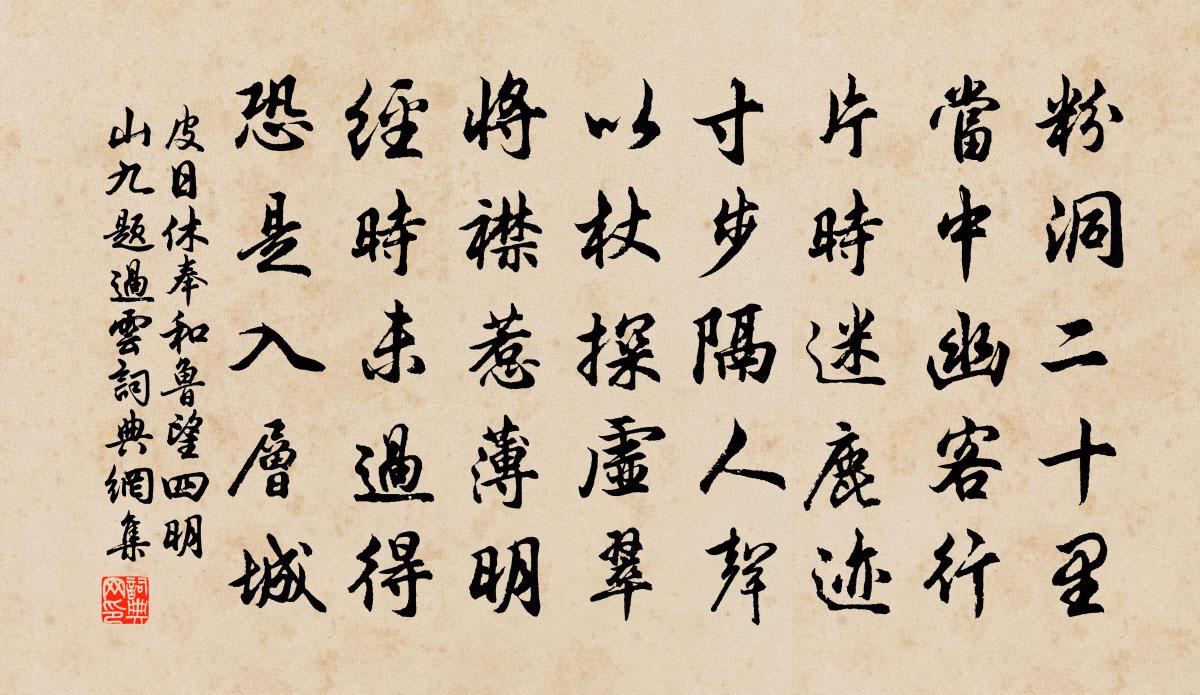 粉洞二十里
當中幽客行
片時迷鹿迹
寸步隔人聲
以杖探虛翠
將襟惹薄明
經時未過得
恐是入層城
皮日休奉和魯望四明
山九題過雲詞典網集
詞典
网印